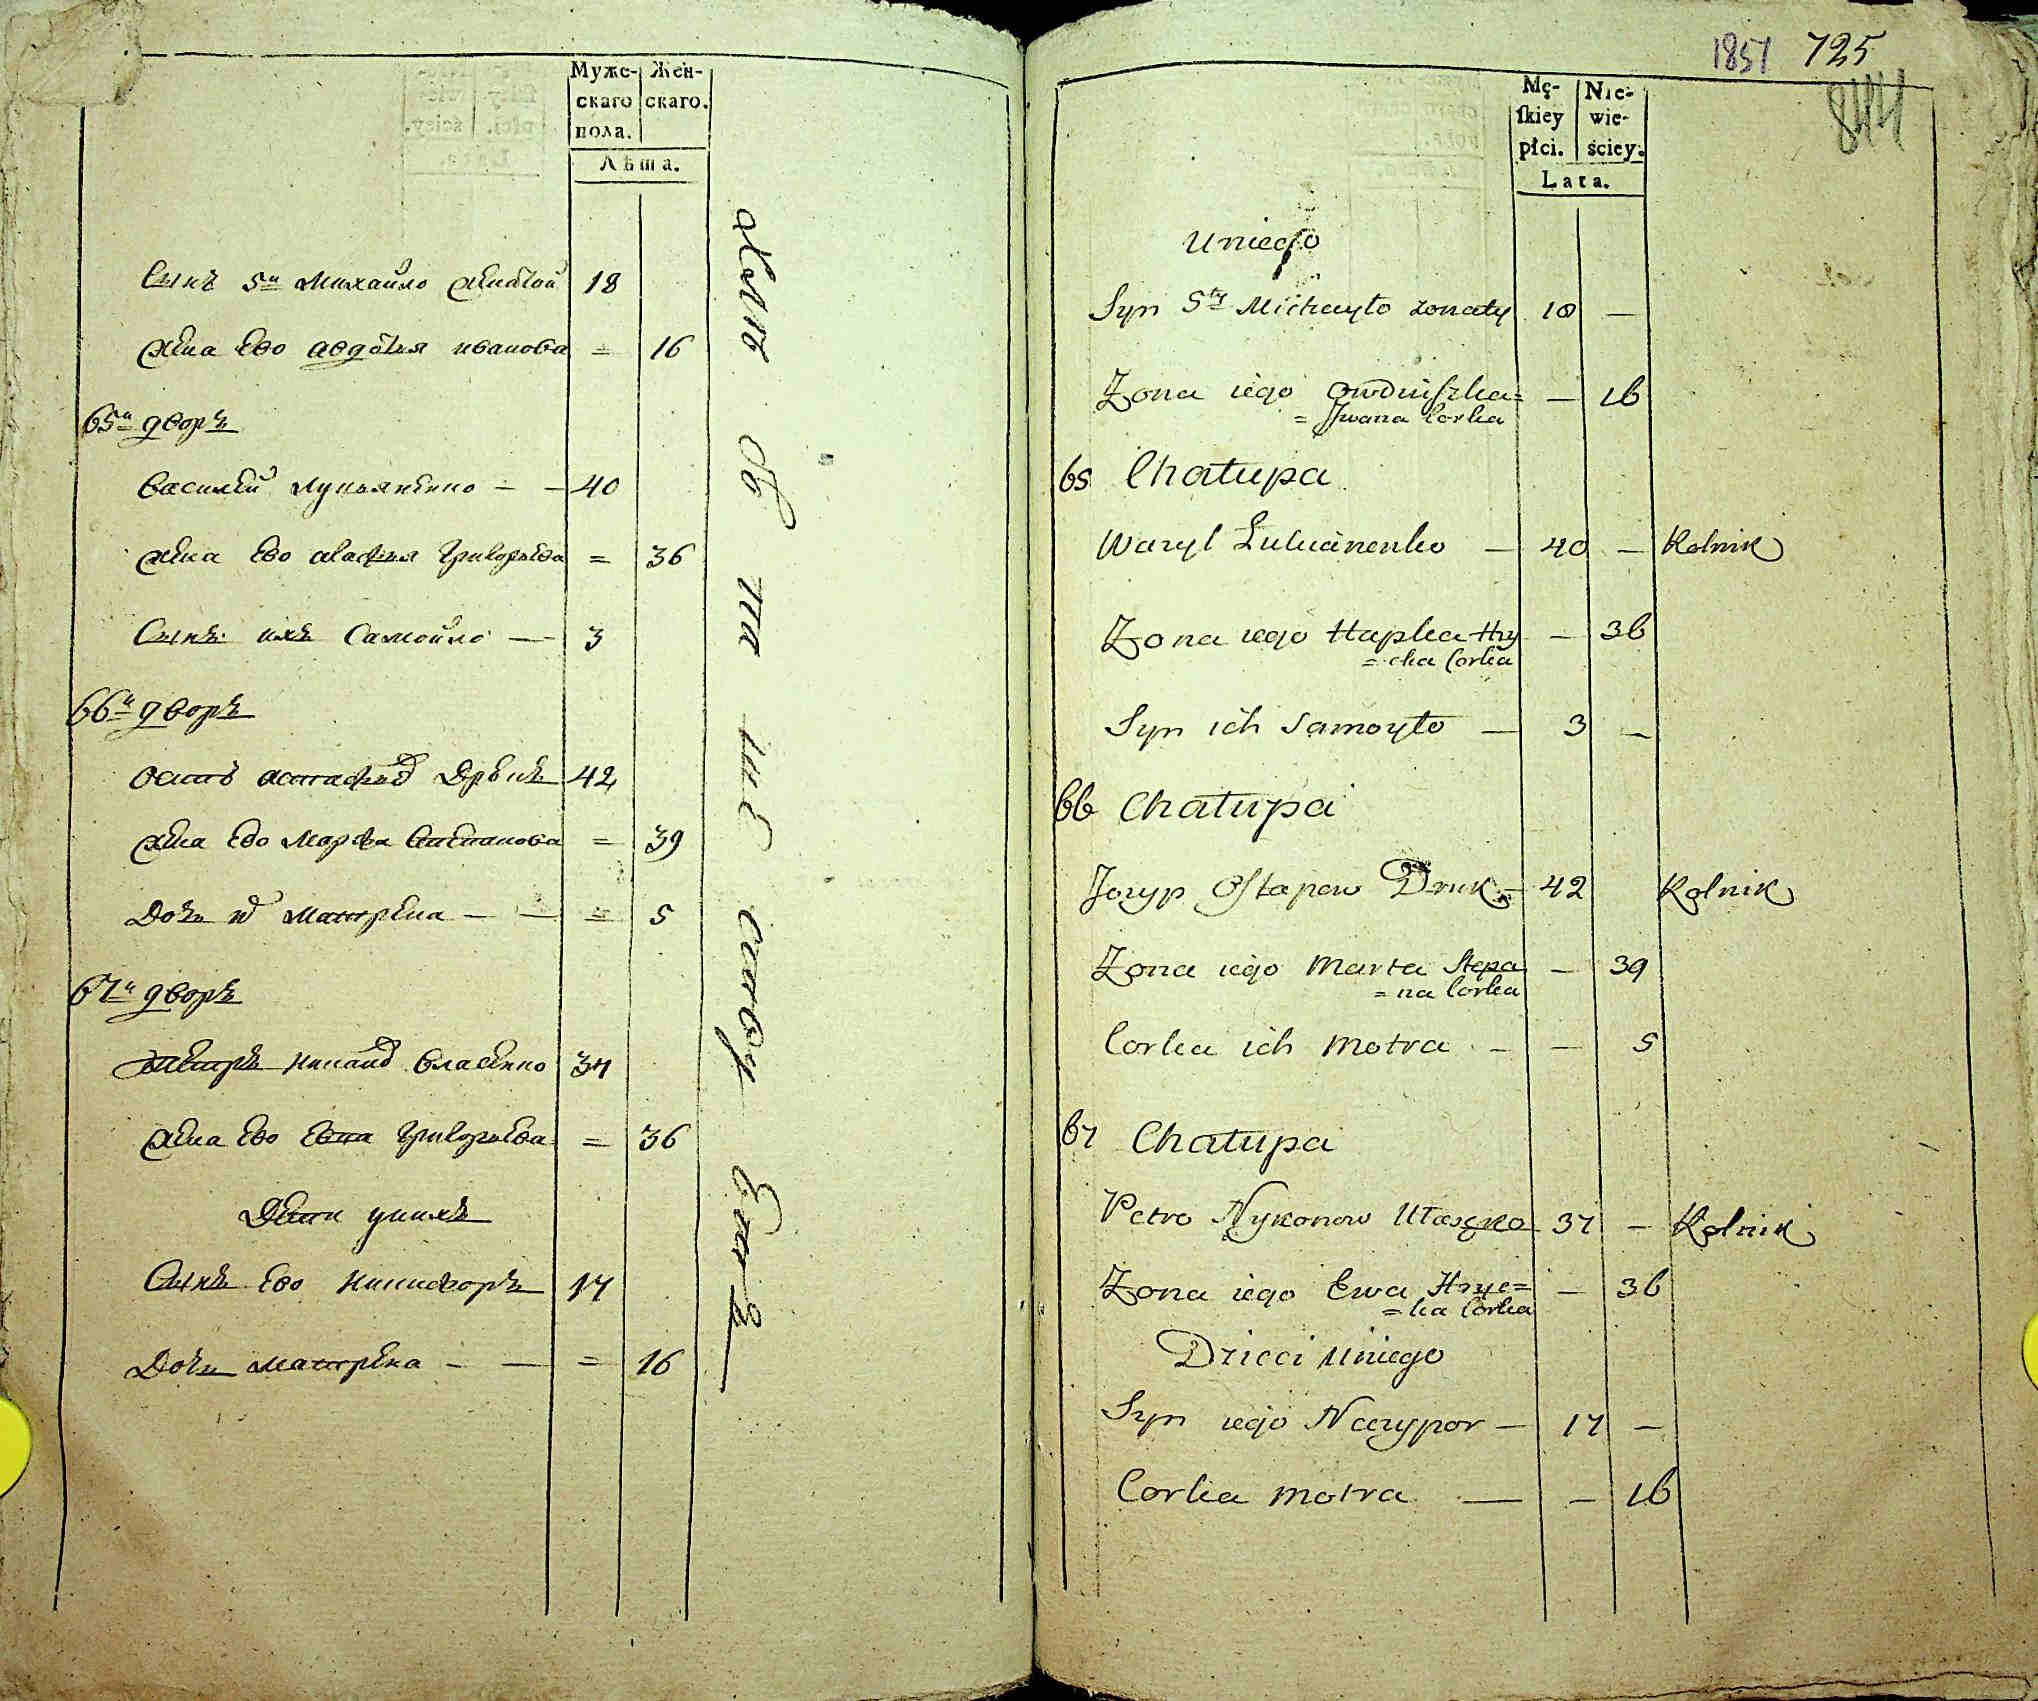 Муже-
скаго
пола.
Жен-
скаго.
Лѣта.
Сынъ 5й Михайло женатой 18
жена ево авдотья иванова = 16
65й дворъ
Василей Лукьяненко — — 40
жена ево агафия Григорьева = 36
Сынъ ихъ Самойло — 3
66й дворъ
осипъ остаповъ Друкъ 42
жена ево Марфа Степанова = 39
Дочь их Матрена — — = 5
67й дворъ
Петръ никоновъ Власенко 34
жена ево Евва Григорьева = 36
Дети у нихъ
Сынъ ево никифоръ 17
Дочь матрена — — = 16
1851 725
844
Mę-
skiey
płci.
Nie-
wie-
ściey.
Lata.
u niego
Syn 5ty Michayło zonaty 18 —
Zona iego Owduszka= — 16
= Jwana Corka
65 Chałupa
Wazyl Lukianenko — 40 — Rolnik
Zona iego Hapka Hry — 36
= cka Corka
Syn ich Samoyło — 3 —
66 Chałupa
Jozyp Ostapow Druk — 42 Rolnik
Zona iego Marta Stepa — 39
= na Corka
Corka ich Motra — — 5
67 Chałupa
Petro Nykonow Ułasęko 37 — Rolnik
Zona iego Ewa Hryc= — 36
= ka Corka
Dzieci u niego
Syn iego Neczypor — 17 —
Corka Motra — — 16